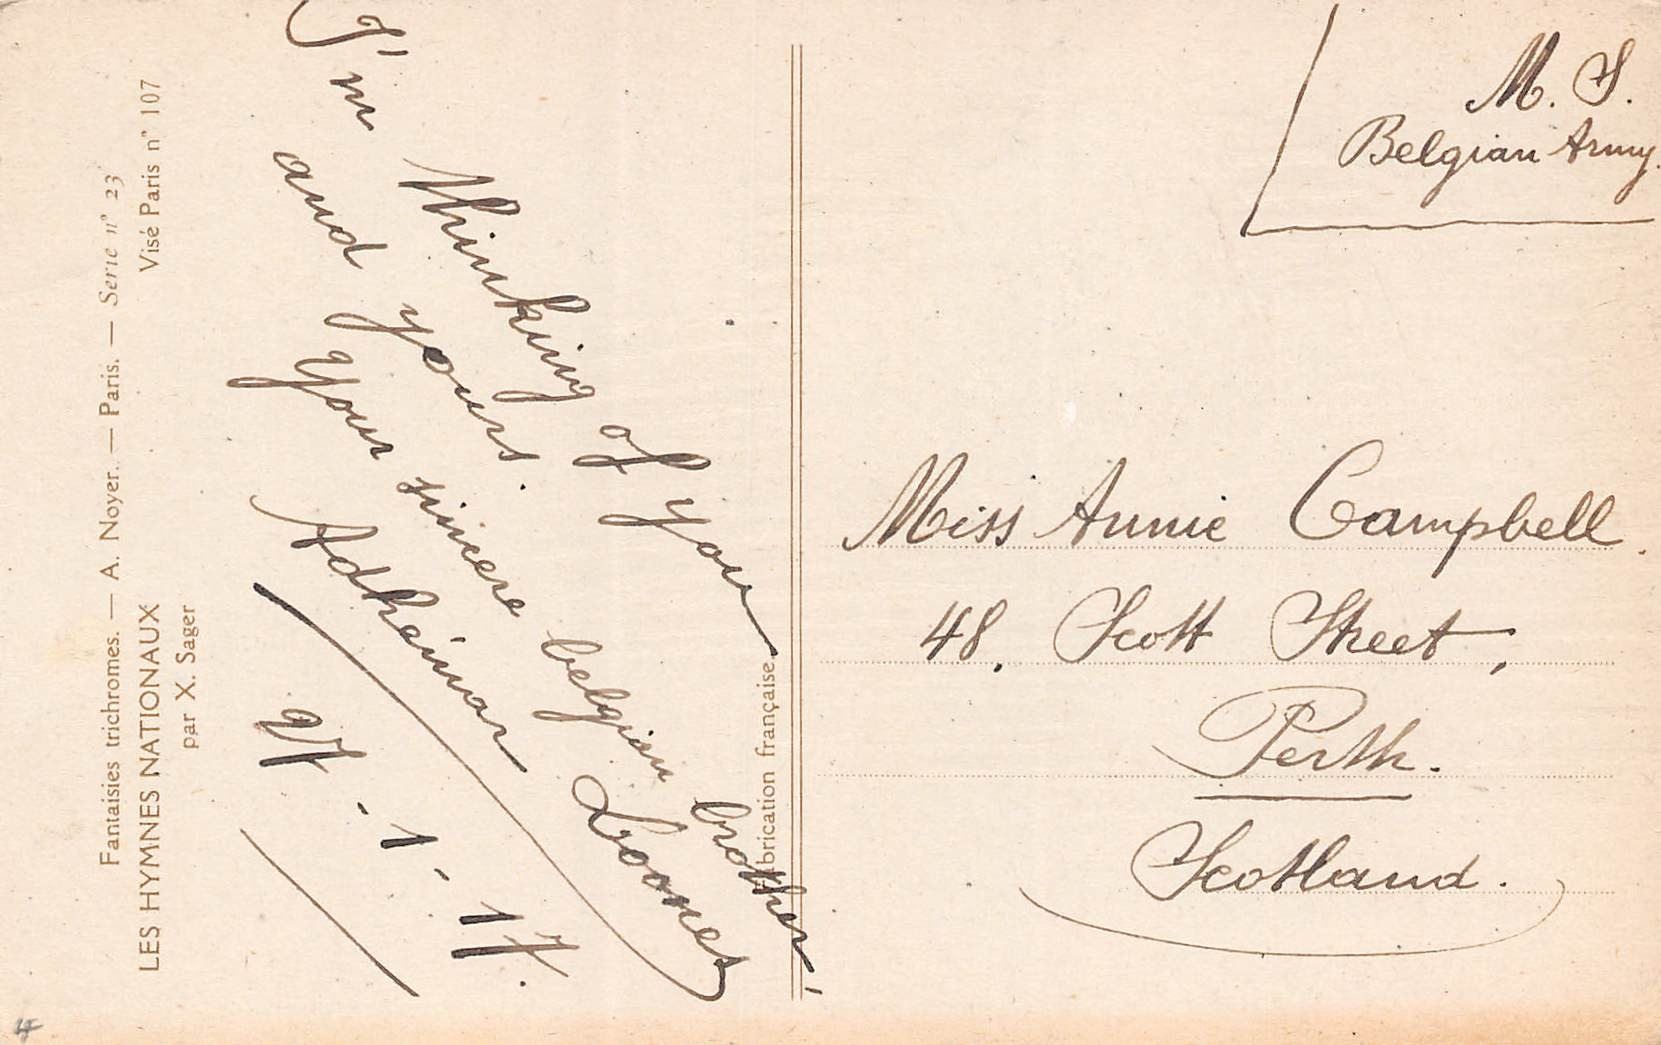 Fantaisies trichromes. — A. Noyer. — Paris. — Serie n° 23
Visé Paris n° 107
LES HYMNES NATIONAUX
par X. Sager
I'm thinking of you
and yours.
Your sincere belgian brother,
Adhémar
27-1-17.
brication française.
M. S.
Belgian Army.
Miss Annie Campbell.
48, Scott Street,
Perth.
Scotland.